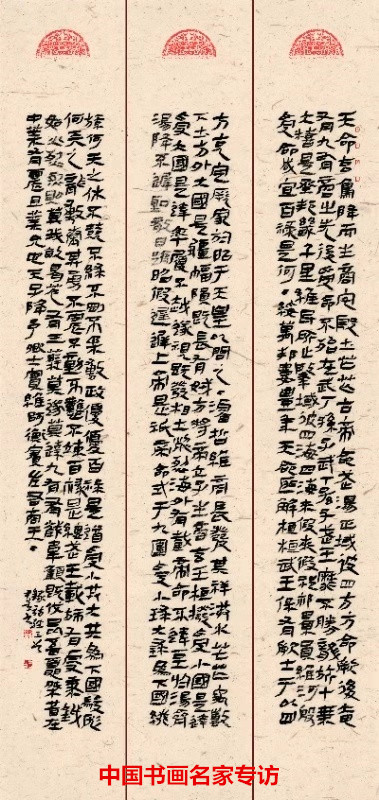 天命玄鳥降而生商宅殷土芒芒古帝命武湯正域彼四方方命厥後奄
有九有商之先後受命不殆在武丁孫子武丁孫子武王靡不勝龍旂十乘
大糦是承邦畿千里維民所止肇域彼四海四海來假來假祁祁景員維河殷
受命咸宜百祿是何。綏萬邦婁豐年天命匪解桓桓武王保有厥士于以四
方克定厥家於昭于天皇以間之。濬哲維商長發其祥洪水芒芒禹敷
下土方外大國是疆幅隕既長有娀方將帝立子生商玄王桓撥受小國是達
受大國是達率履不越遂視既發相土烈烈海外有截帝命不違至於湯齊
湯降不遲聖敬日躋昭假遲遲上帝是祗帝命式于九圍受小球大球為下國綴
旒何天之休不競不絿不剛不柔敷政優優百祿是遒受小共大共為下國駿厖
何天之龍敷奏其勇不震不動不戁不竦百祿是總武王載旆有虔秉鉞
如火烈烈則莫我敢曷苞有三蘗莫遂莫達九有有截韋顧既伐昆吾夏桀昔在
中葉有震且業允也天子降予卿士實維阿衡實左右商王。
中国书画名家专访